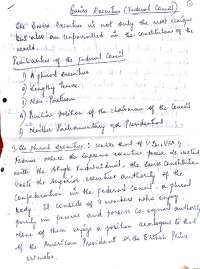 Swiss Executive (Federal Council)
The Swiss Executive is not only the most unique
but also an unparalleled in the constitutions of the
world.
Peculiarities of the Federal Council
1) A plural executive
2) Lengthy Tenure
3) Non-Partisan
4) Peculiar position of the chairman of the Council
5) Neither Parliamentary nor Presidential
1) The plural executive : unlike that of U.K., U.S.A.
where the supreme executive power is vested
with the single individual, the Swiss Constitution
vests the supreme executive authority of the
Confederation in the Federal Council - a plural
body. It consists of 7 members who enjoy
parity in powers and possess co-equal authority
None of them enjoys a position analogous to that
of the American President or the British Prime
minister.